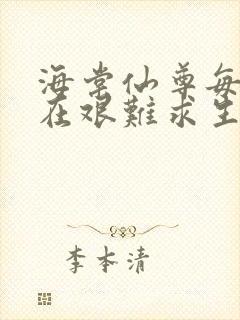 海棠仙尊每
在艰难求生
李本清